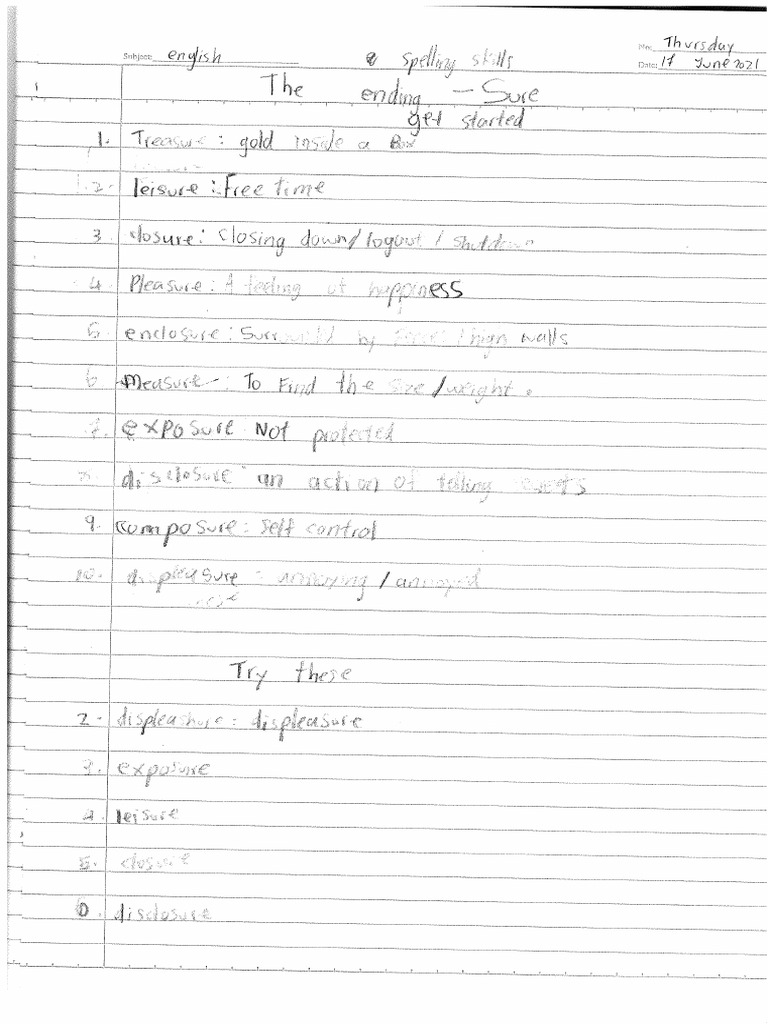 Subject: english
spelling skills
No: Thursday
Date: 17 June 2021
The ending - Sure
get started
1. Treasure: gold inside a Box
2. leisure: Free time
3. closure: closing down/logout / shutdown
4. Pleasure: A feeling of happiness
5. enclosure: Surround by / high walls
6. Measure: To Find the size/weight.
7. exposure Not protected
8. disclosure an action of telling
9. composure: self control
10. displeasure: annoying / annoyed
Try these
2. displeashure: displeasure
3. exposure
4. leisure
5. closure
6. disclosure